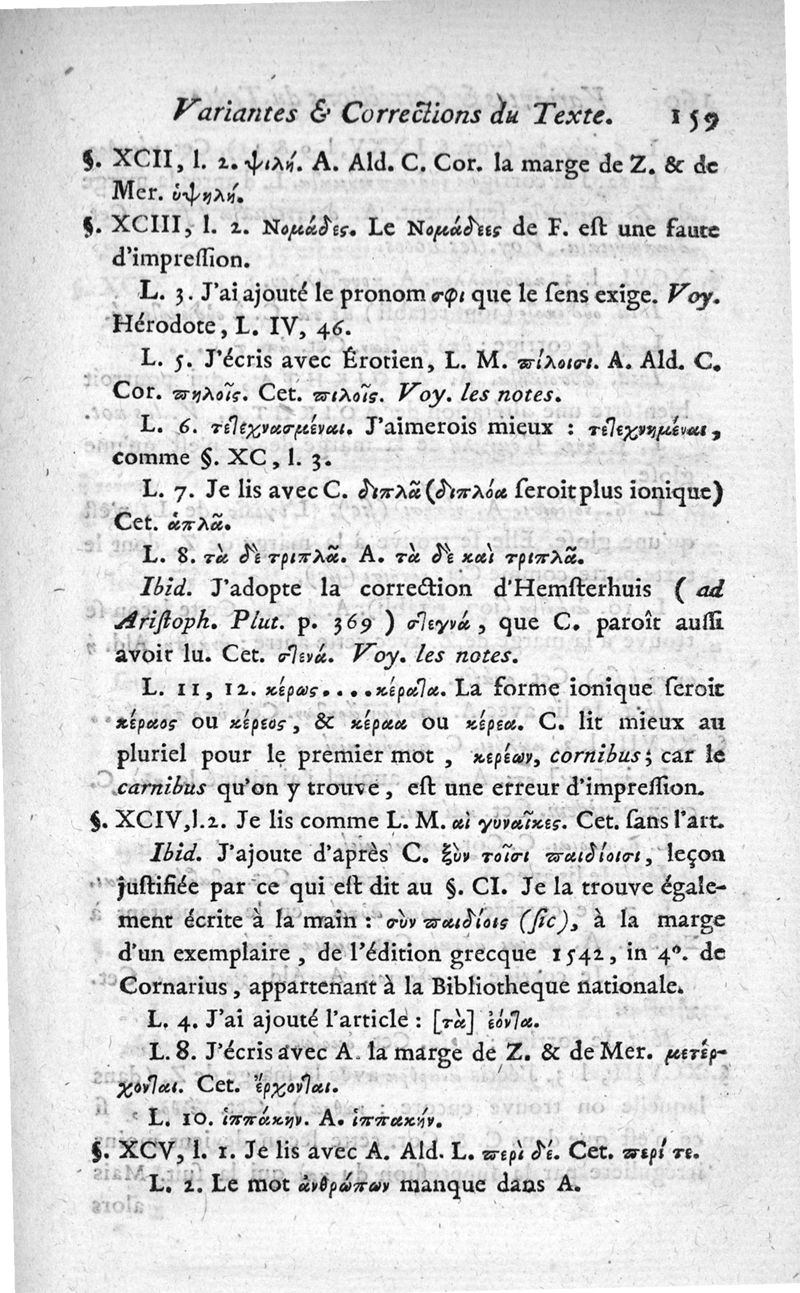 Variantes & Corrections du Texte. 159
§. XCII, l. 2. ψιλή. A. Ald. C. Cor. la marge de Z. & de
Mer. ὑψηλή.
§. XCIII, l. 2. Νομάδες. Le Νομάδεες de F. eſt une faute
d'impreſſion.
L. 3. J'ai ajouté le pronom σφι que le ſens exige. Voy.
Hérodote, L. IV, 46.
L. 5. J'écris avec Érotien, L. M. πίλοισι. A. Ald. C.
Cor. πηλοῖς. Cet. πιλοῖς. Voy. les notes.
L. 6. τετεχνασμέναι. J'aimerois mieux : τετεχνημέναι,
comme §. XC, l. 3.
L. 7. Je lis avec C. διπλᾶ (διπλόα ſeroit plus ionique)
Cet. ἁπλᾶ.
L. 8. τὰ δὲ τριπλᾶ. A. τὰ δὲ καὶ τριπλᾶ.
Ibid. J'adopte la correction d'Hemſterhuis ( ad
Ariſtoph. Plut. p. 369 ) στεγνά, que C. paroît auſſi
avoir lu. Cet. στενά. Voy. les notes.
L. 11, 12. κέρως....κέρατα. La forme ionique ſeroit
κέραος ou κέρεος, & κέραα ou κέρεα. C. lit mieux au
pluriel pour le premier mot, κερέων, cornibus; car le
carnibus qu'on y trouve, eſt une erreur d'impreſſion.
§. XCIV, l. 2. Je lis comme L. M. αἱ γυναῖκες. Cet. ſans l'art.
Ibid. J'ajoute d'après C. ξὺν τοῖσι παιδίοισι, leçon
juſtifiée par ce qui eſt dit au §. CI. Je la trouve égale-
ment écrite à la main : σὺν παιδίοις (ſic), à la marge
d'un exemplaire, de l'édition grecque 1542, in 4°. de
Cornarius, appartenant à la Bibliotheque nationale.
L. 4. J'ai ajouté l'article : [τὰ] ἐόντα.
L. 8. J'écris avec A. la marge de Z. & de Mer. μετέρ-
χονται. Cet. ἔρχονται.
L. 10. ἱππάκην. A. ἱππακήν.
§. XCV, l. 1. Je lis avec A. Ald. L. περὶ δέ. Cet. περί τε.
L. 2. Le mot ἀνθρώπων manque dans A.